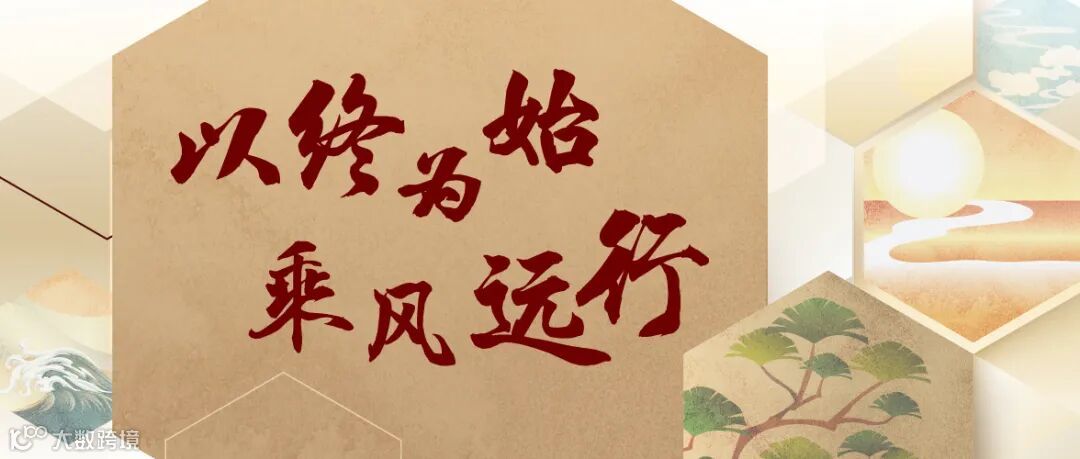 以终为始
乘风远行
大数跨境